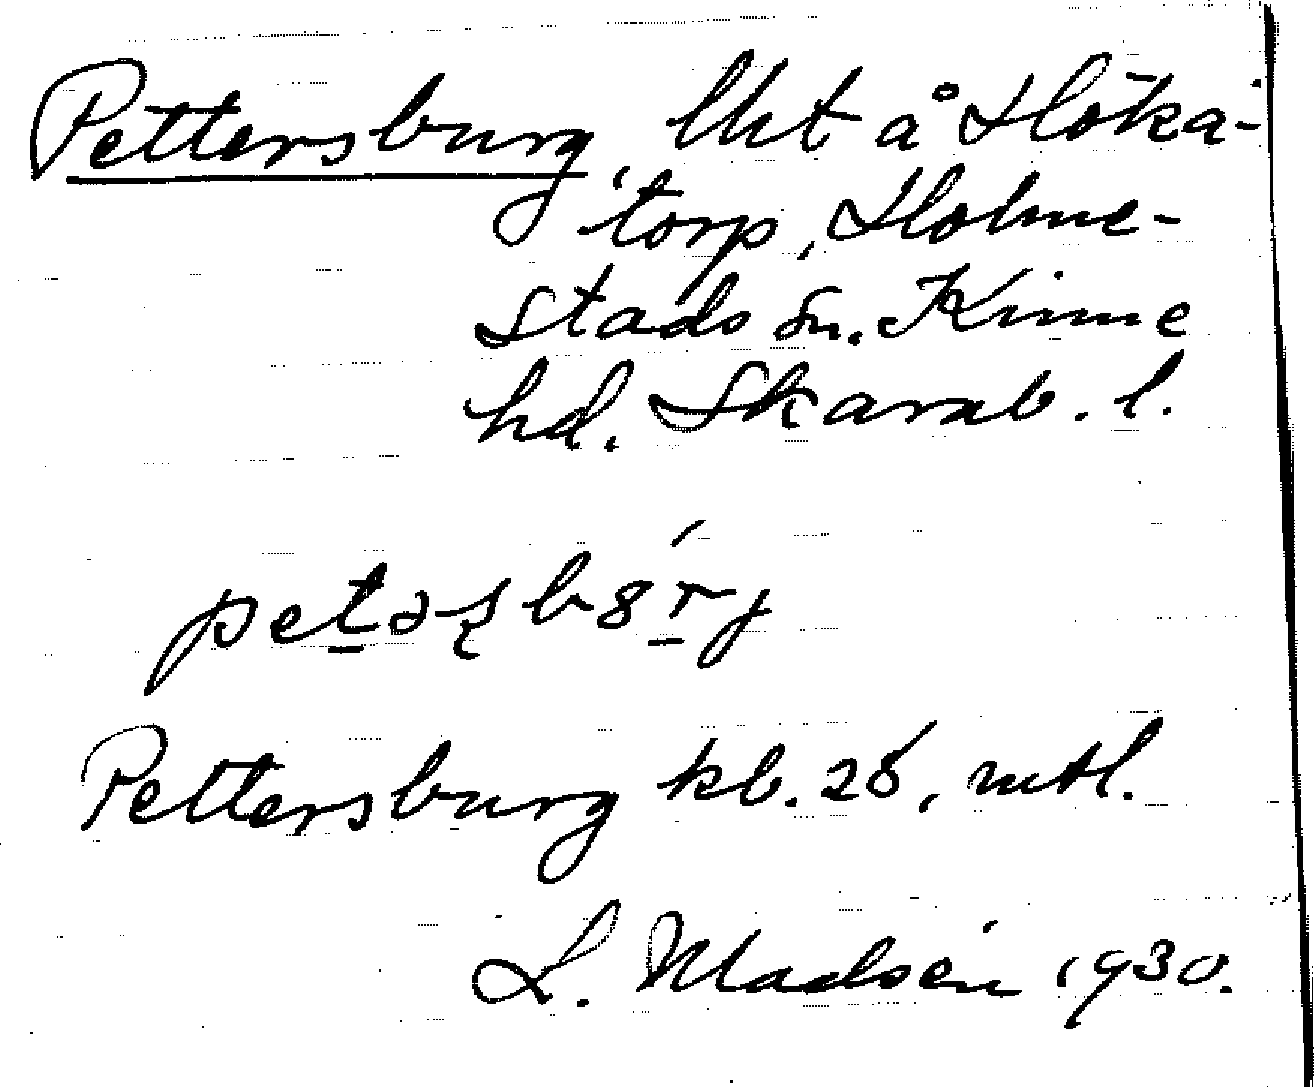 Pettersburg, lht å Höka-
torp, Holme-
stads sn. Kinne
hd. Skarab. l.
Pettersburg kb. 28, mtl.
L. Madsén 1930.